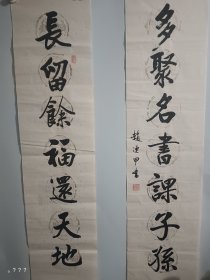 多聚名書課子孫
趙連甲書
長留餘福還天地